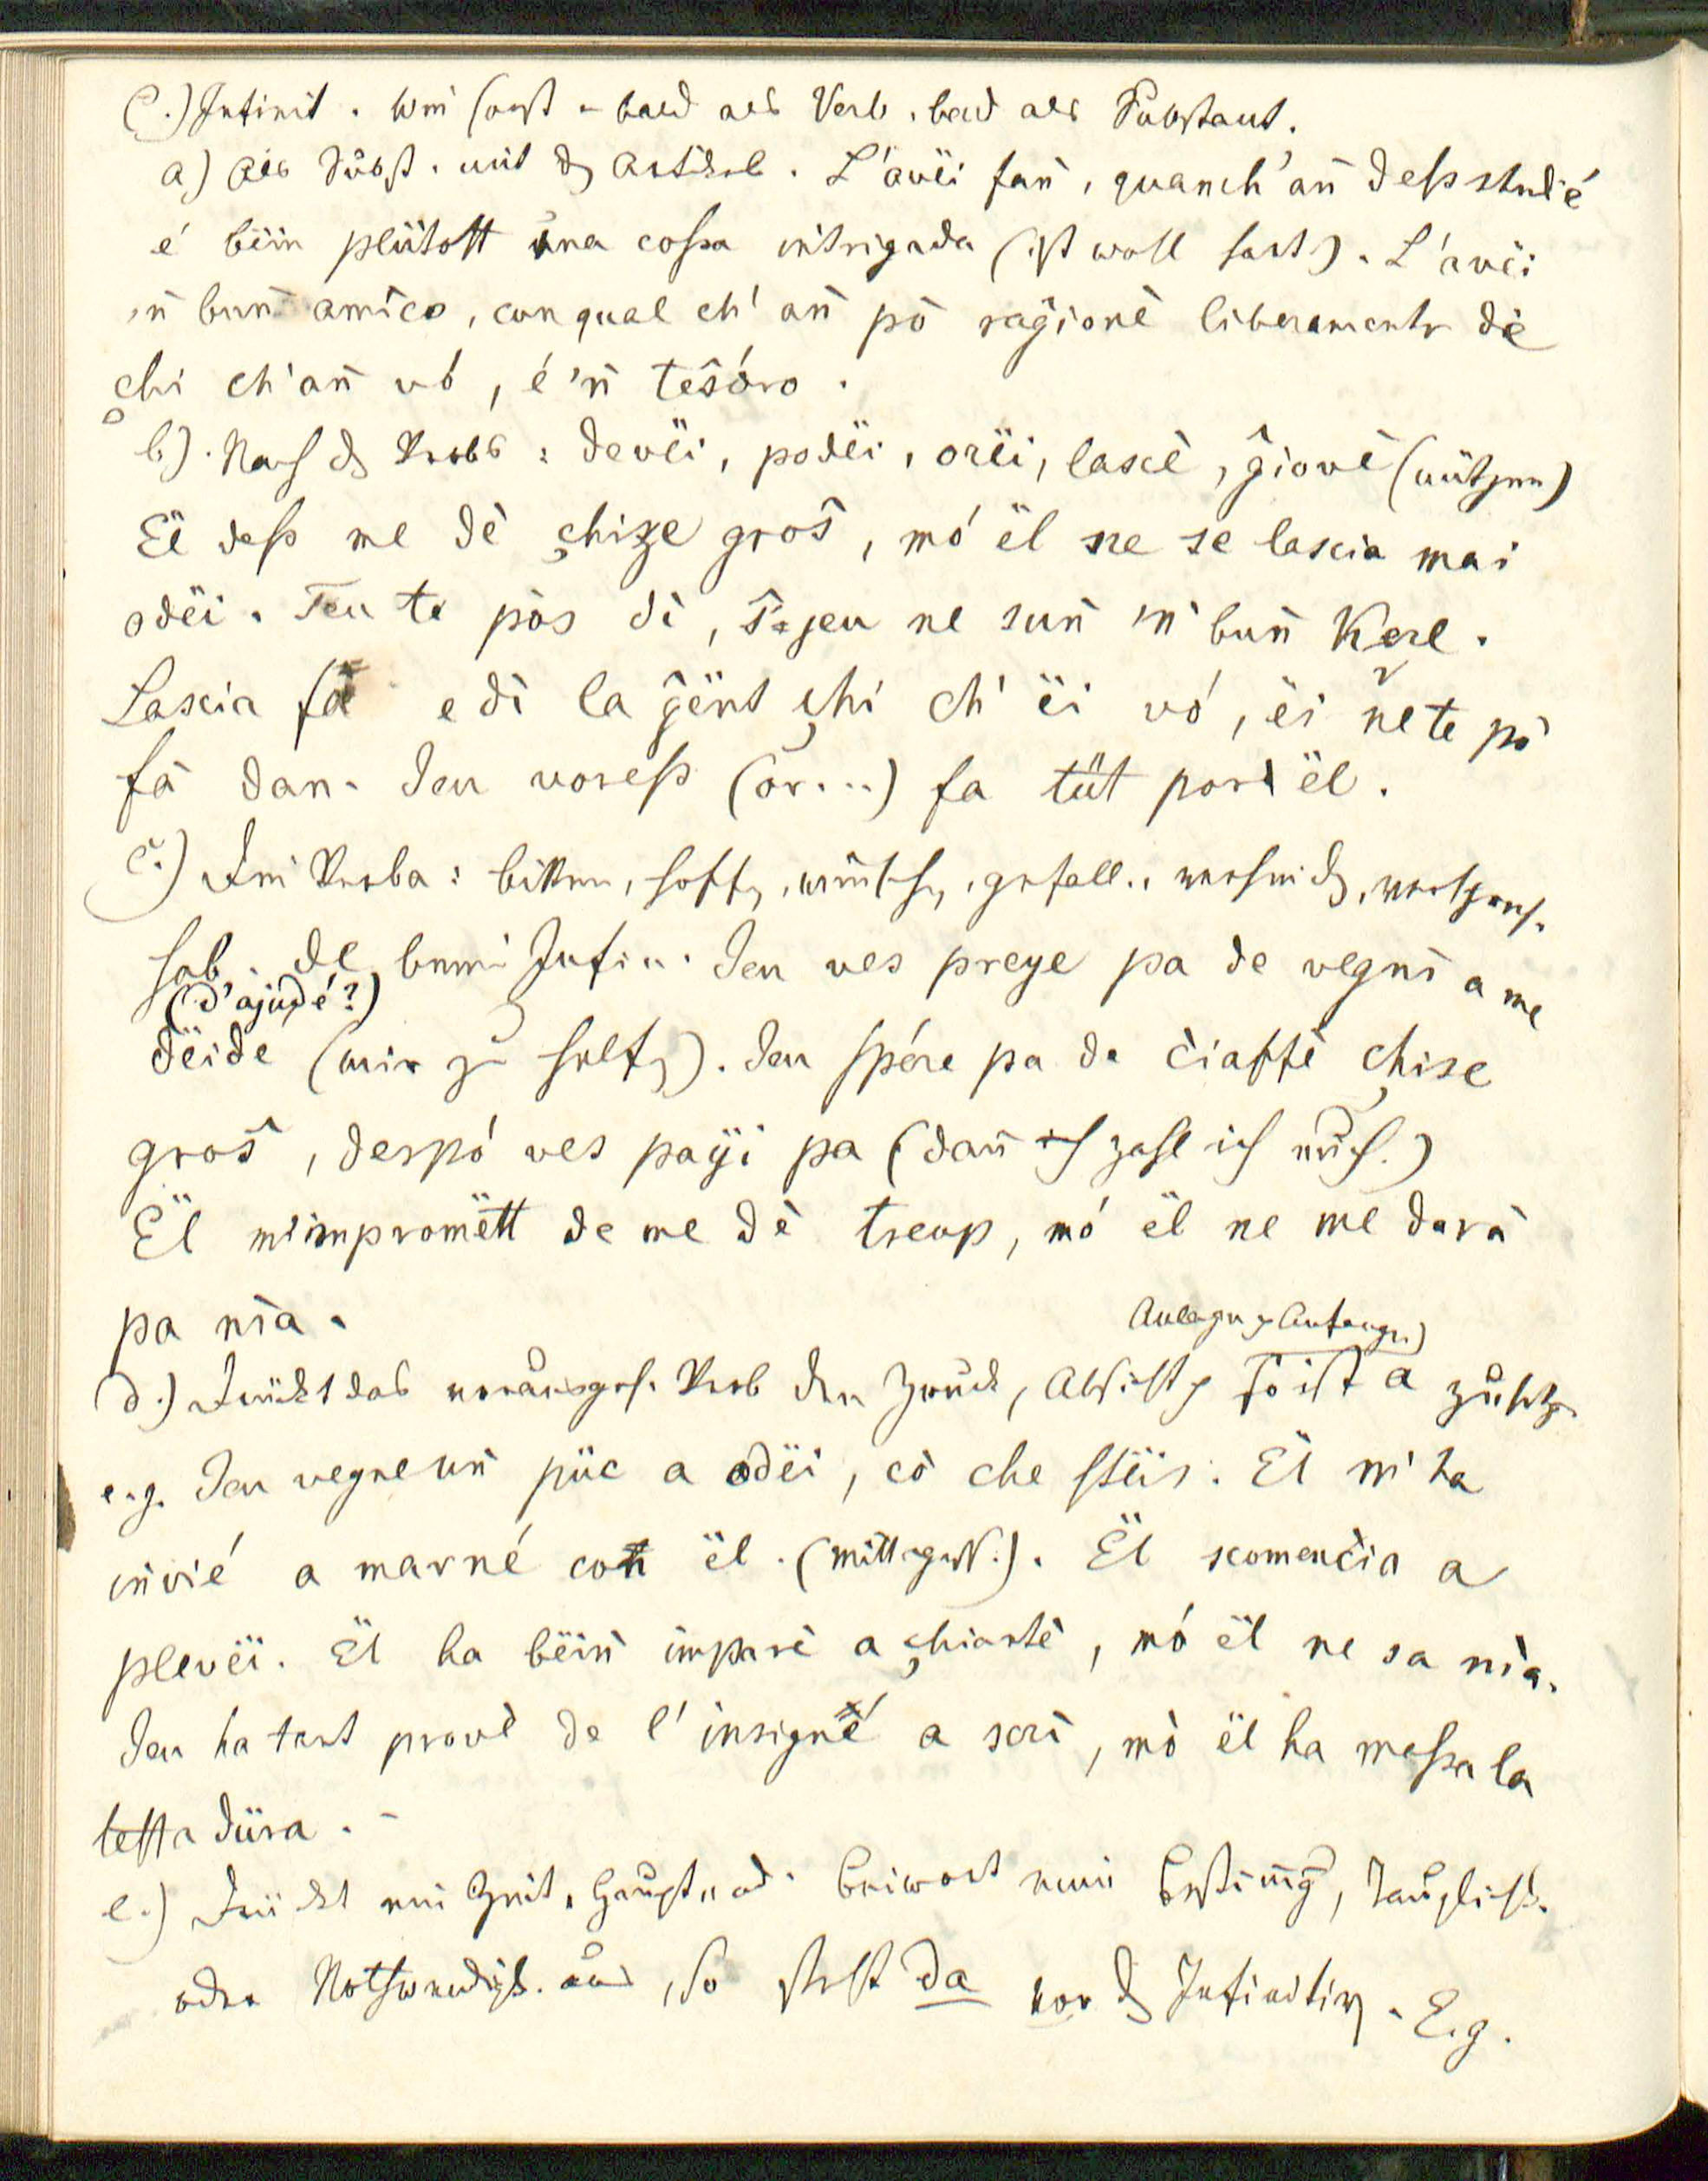 C.) Infinit. wie sonst - bald als Verb, bald als Substant.
a) Als Subst. mit d Artikel. L'avëi fan̄, quanch' an̄ dess studié
é bëin plütott üna cossa intrigada (ist wohl hart). L'avëi
'n bun̄ amico, con qual ch' an̄ pò raĝionè liberamente de
çhi ch' an̄ vó, é 'n̄ tesóro.
b). Nach d Verbs: devëi, podëi, orëi, lascè, ĝiovè (nützen)
Ël dess me dè çhize groŝ, mó ël ne se lascia mai
odëi. Teu te pòs dì, jeu ne sun̄ 'n̄ bun̄ Kerl.
Lascia fà e dì la ĝënt çhi ch' ëi vó, ëi ne te pò
fà dan. Jeu voress (or...) fa tüt por ël.
c.) Die Verba: bitten, hoff, wünsch, gefall., vermeid, versprech.
hab. de beim Infin. Jeu ves preye pa de vegnì a me
(d'ajüdé?)
dëide (mir zu helf). Jeu spére pa de ciaffè çhise
groŝ, despó ves payi pa (dan̄ zahl ich euch.)
Ël m'impromëtt de me dè treup, mó ël ne me darà
pa nìa.
Anlegen, Anfangen)
d.) Drückt das vorausgeh. Verb den Zweck, Absicht, so ist a zu setz.
e.g. Jeu vegne un̄ püc a odëi, cò che stëis. Ël m'ha
invié a marné con ël. (mittagess.). Ël scomencia a
plevëi. Ël ha bëin̄ imparè a çhiantè, mó ël ne sa nìa.
Jeu ha tant provè de l' insigné a scrì, mò ël ha messa la
testa düra. -
e.) Drückt ein Zeit, Haupt, od. Beiwort eine Bestim̄g, Tauglichk.
oder Nothwendigk. aus, so steht da vor d Infinitiv. E.g.